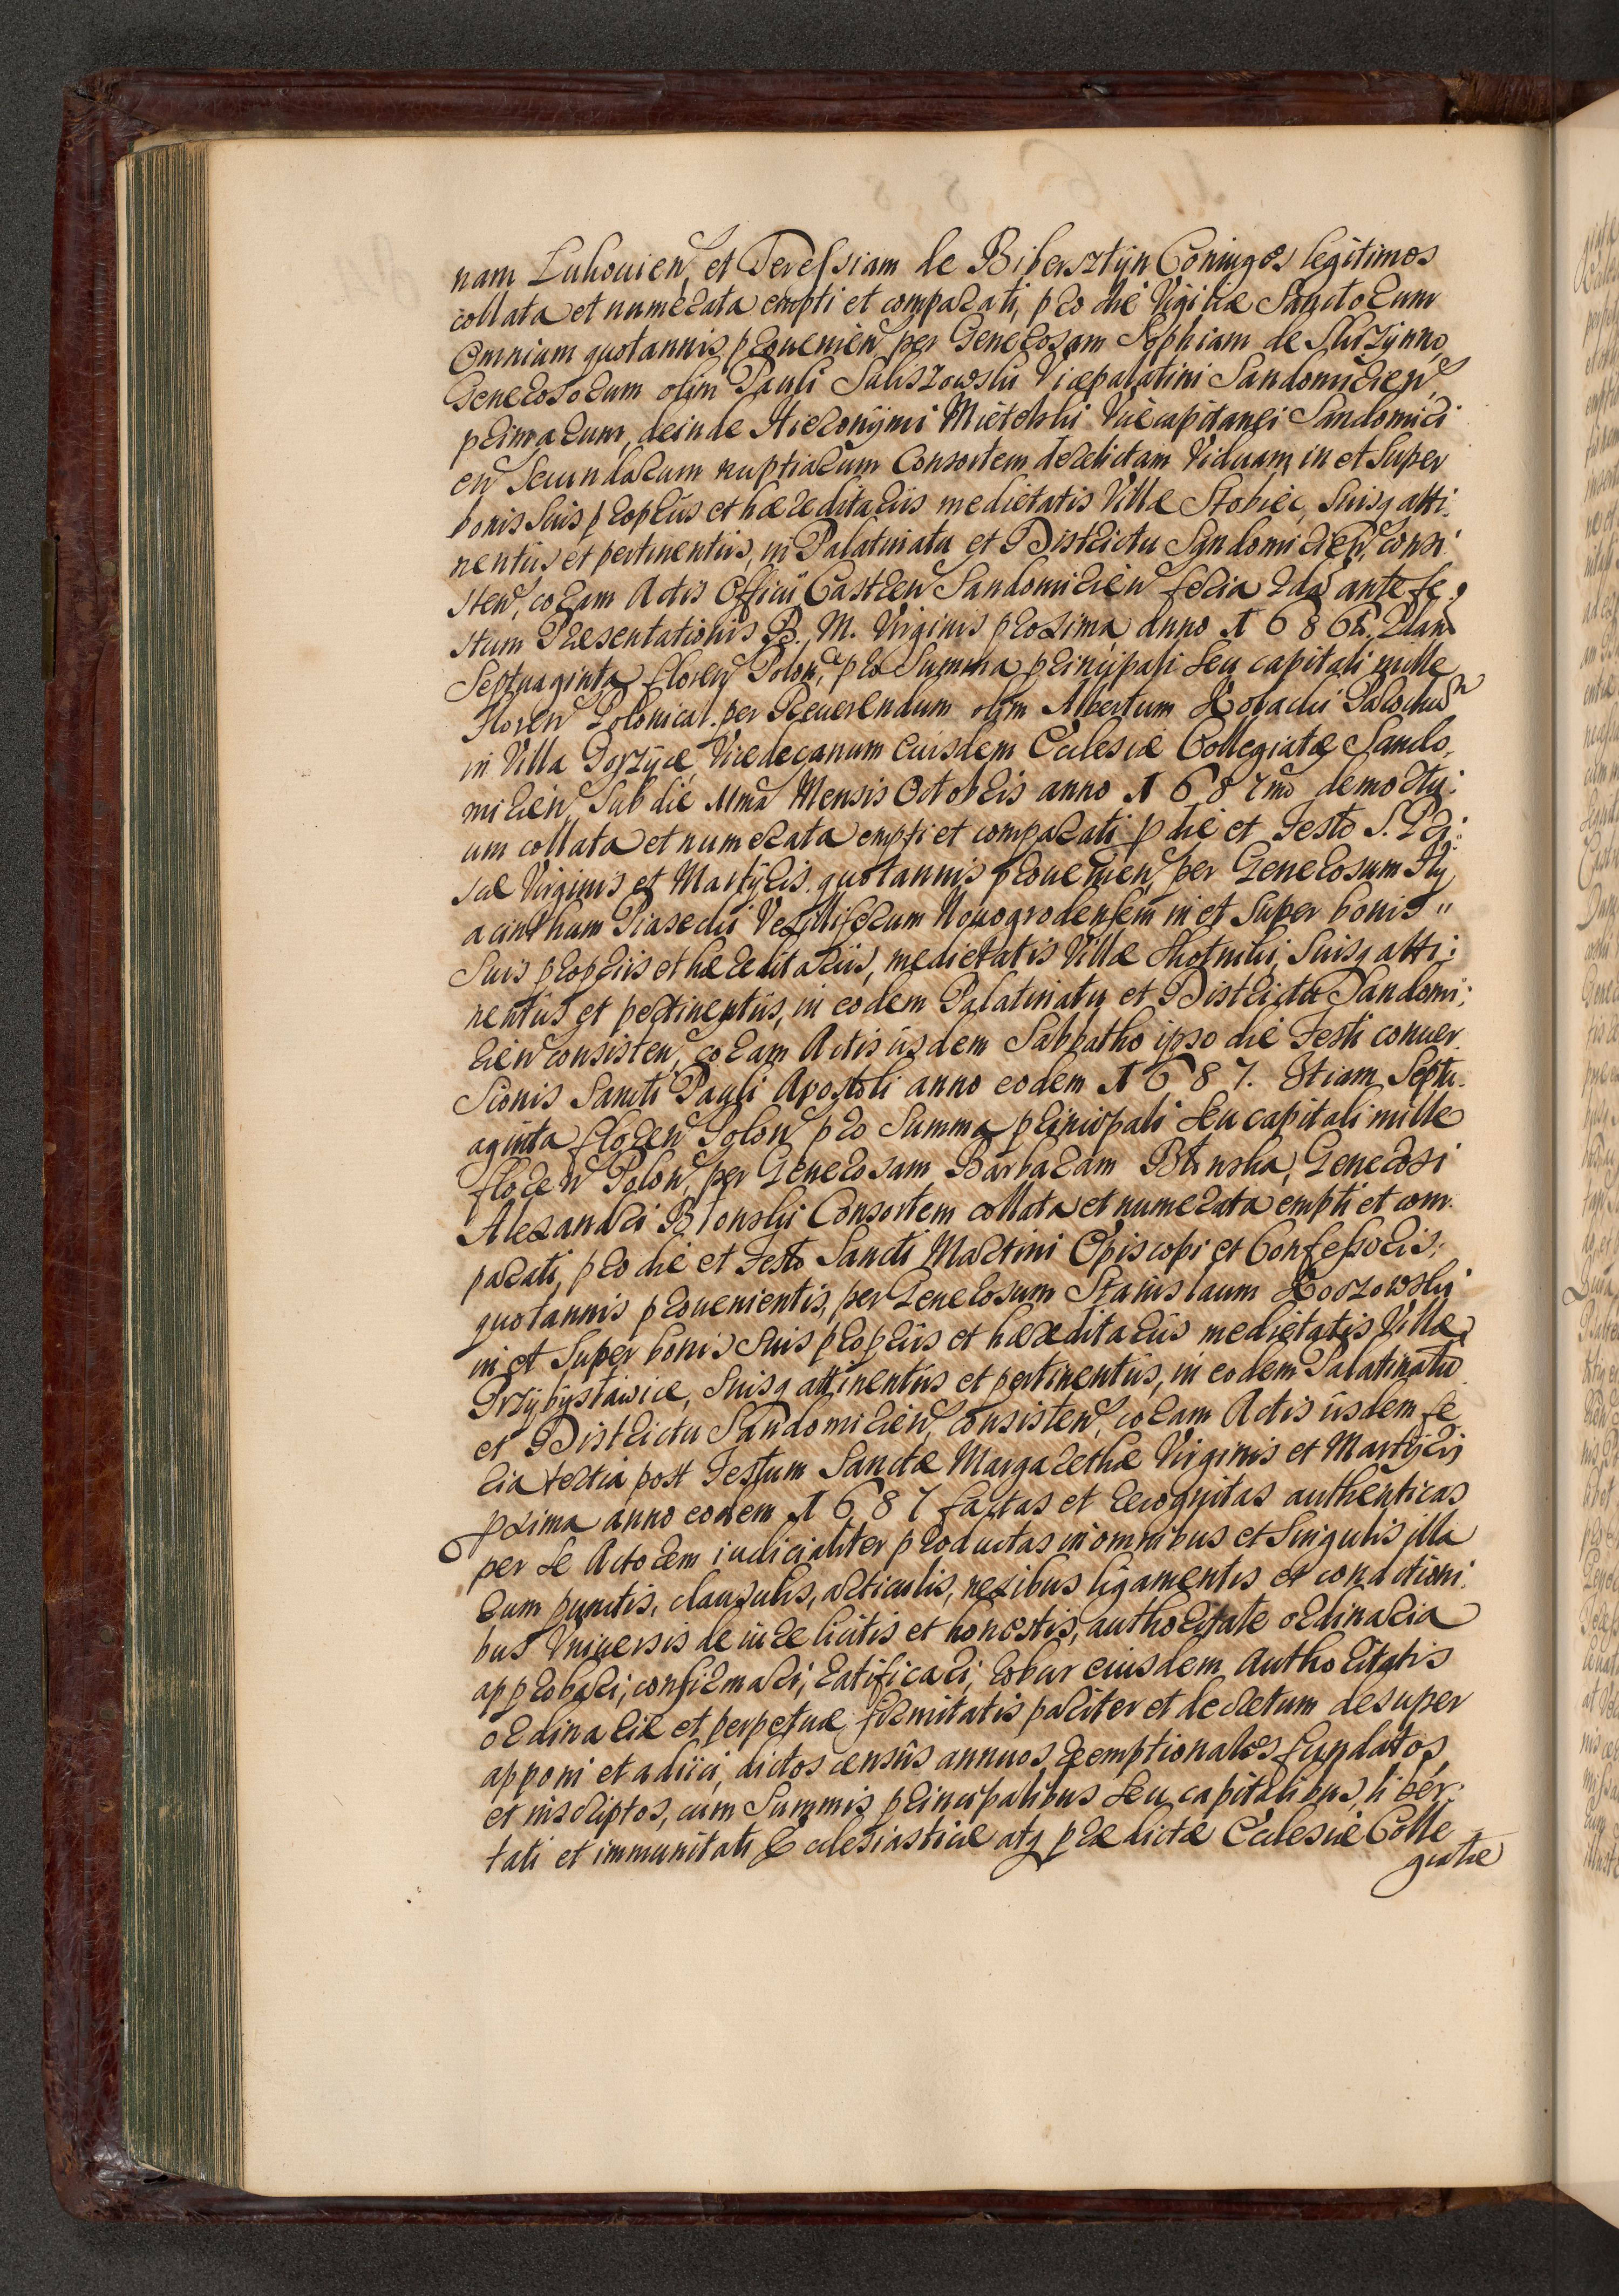 nam Lukouien, et Deressiam de Bibersztyn Coniuges legitimos
collata et numerata empti et comparati, pro die Vigiliæ Sanctorum
Omnium quotannis prouenien per Generosam Sophiam de
Generosorum olim Pauli Vicepalatini Sandomirien,
primarum, deinde Hieronymi Mietelski Vicecapitanei Sandomiri
en Secundarum nuptiarum Consortem derelictam Viduam, in et Super
bonis Suis proprijs et hæreditarijs medietatis Villæ Stobiec, Suisq atti:
nentijs et pertinentijs, in Palatinatu et Districtu Sandomirien, consi:
sten, coram Actis Officij Castren Sandomirien feria 2da ante fe:
stum Præsentationis B. M. Virginis proxima anno 1686to. Idan
Septuaginta floren Polon, pro Summa principali Seu capitali mille
Floren Polonical. per Reuerendum olim Albertum Parochum
in Villa Gorzyce Vicedecanum Eiusdem Ecclesiæ Collegiatæ Sando,
mirien, Sub die Mensis Octobris anno 1687mo demortu:
um collata et numerata empti et comparati p die et Festo S. Pri:
scæ Virginis et Martyris quotannis prouenien, per Generosum Hy
acinthum Piasecki Vexilliferum Nouogrodensem in et Super bonis "
Suis proprijs et hæreditarijs, medietatis Villæ Skotniki, Suisq atti:
nentijs et pertinentijs, in eodem Palatinatu et Districtu Sandomi:
rien consisten, coram Actis ijsdem Sabbatho ipso die Festi conuer
Sionis Sancti Pauli Apostoli anno eodem 1687. Etiam Septu.
aginta floren Polon pro Summa principali Seu capitali mille
floren Polon, per Generosam Barbaram Generosi
Alexandri Blonsky Consortem collata et numerata empti et com:
parati, pro die et Festo Sancti Martini Episcopi et Confessoris,
quotannis prouenientis, per Generosum Stanislaum
in et Super bonis Suis proprijs et hæreditarijs medietatis Villæ
Przybysławice, Suisq attinentijs et pertinentijs, in eodem Palatinatu
et Districtu Sandomirien, consisten, coram Actis ijsdem fe
ria tertia post Festum Sanctæ Margarethæ Virginis et Martyris
pxima anno eodem 1687 factas et recognitas authenticas
per Se Actorem iudicialiter productas in omnibus et Singulis illa
rum punctis, clausulis, articulis, nexibus ligamentis et conditioni:
bus Vniuersis de iure licitis et honestis, authoritate ordinaria
approbari, confirmari, ratificari, robur eiusdem Authoritatis
ordinariæ et perpetuæ firmitatis pariter et decretum desuper
apponi et adiici, dictos censûs annuos reemptionales fundatos,
et inscriptos, cum Summis principalibus Seu capitalibus, liber:
tati et immunitati Ecclesiasticæ atq prædictæ Ecclesiæ Colle
giatæ